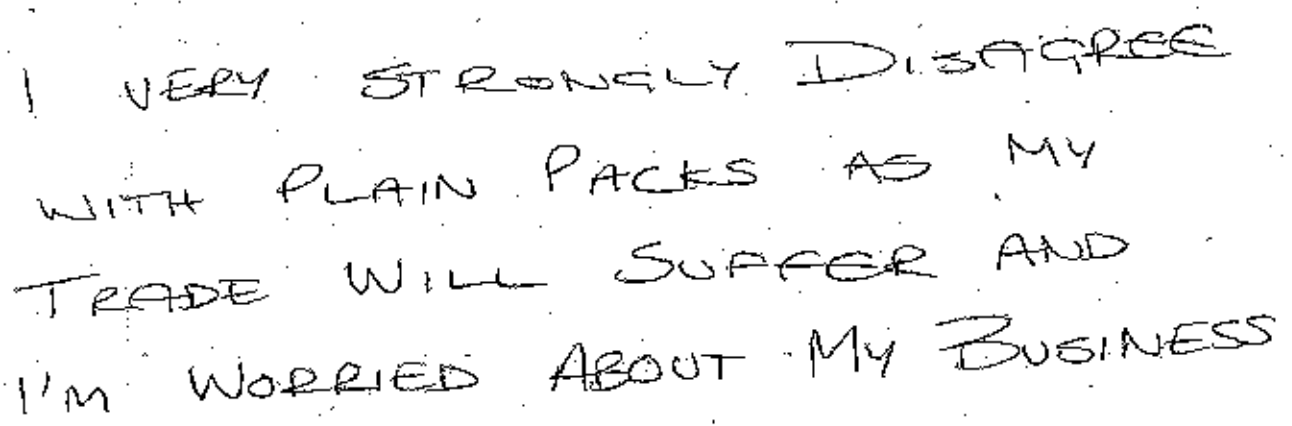 I VERY STRONGLY DISAGREE
WITH PLAIN PACKS AS MY
TRADE WILL SUFFER AND
I'M WORRIED ABOUT MY BUSINESS